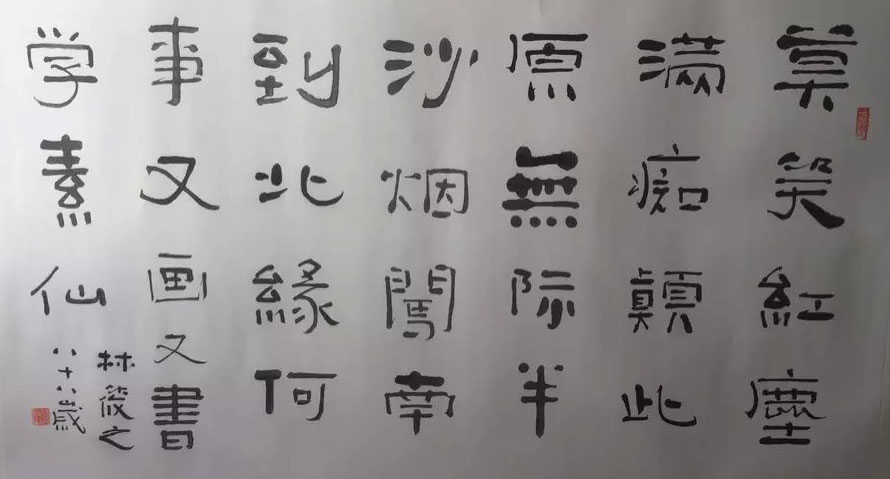 莫笑紅塵
满痴顛此
原無际半
沙烟闖南
到北緣何
事又画又書
学素仙
林筱之
八十八嵗